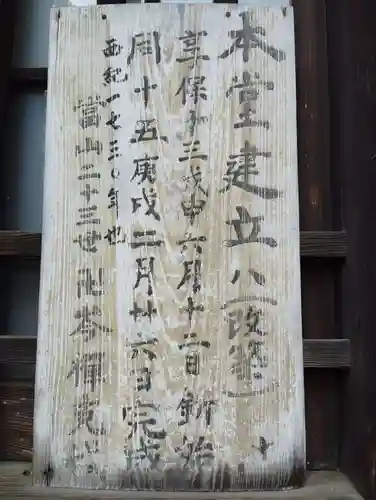 本堂建立ハ(改築)
享保十三戊申六月十二日釿始
同十五庚戌二月廿六日完成
西紀一七三〇年也
當山二十三世卍